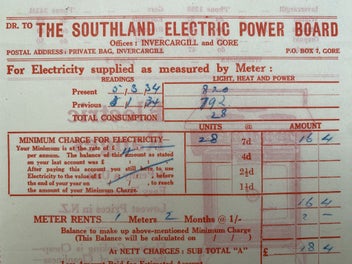 DR. TO THE SOUTHLAND ELECTRIC POWER BOARD
Offices: INVERCARGILL and GORE
POSTAL ADDRESS: PRIVATE BAG, INVERCARGILL P.O. BOX 7, GORE
For Electricity supplied as measured by Meter:
READINGS LIGHT, HEAT AND POWER
Present 5 . 3 . 34 820
Previous 34 792
TOTAL CONSUMPTION 28
MINIMUM CHARGE FOR ELECTRICITY— UNITS @ AMOUNT
Your Minimum is at the rate of £ 28 7d 16 4
per annum. The balance of this amount as stated
on your last account was £ 4d
After paying this account you still have to use 2½d
Electricity to the value of £ before the
end of your year on , to reach 1½d
the amount of your Minimum Charge.
16 4
METER RENTS 1 Meters 2 Months @ 1/- 2 -
Balance to make up above-mentioned Minimum Charge
(This Balance will be calculated on / / )
At NETT CHARGES: SUB TOTAL "A" £ 18 4